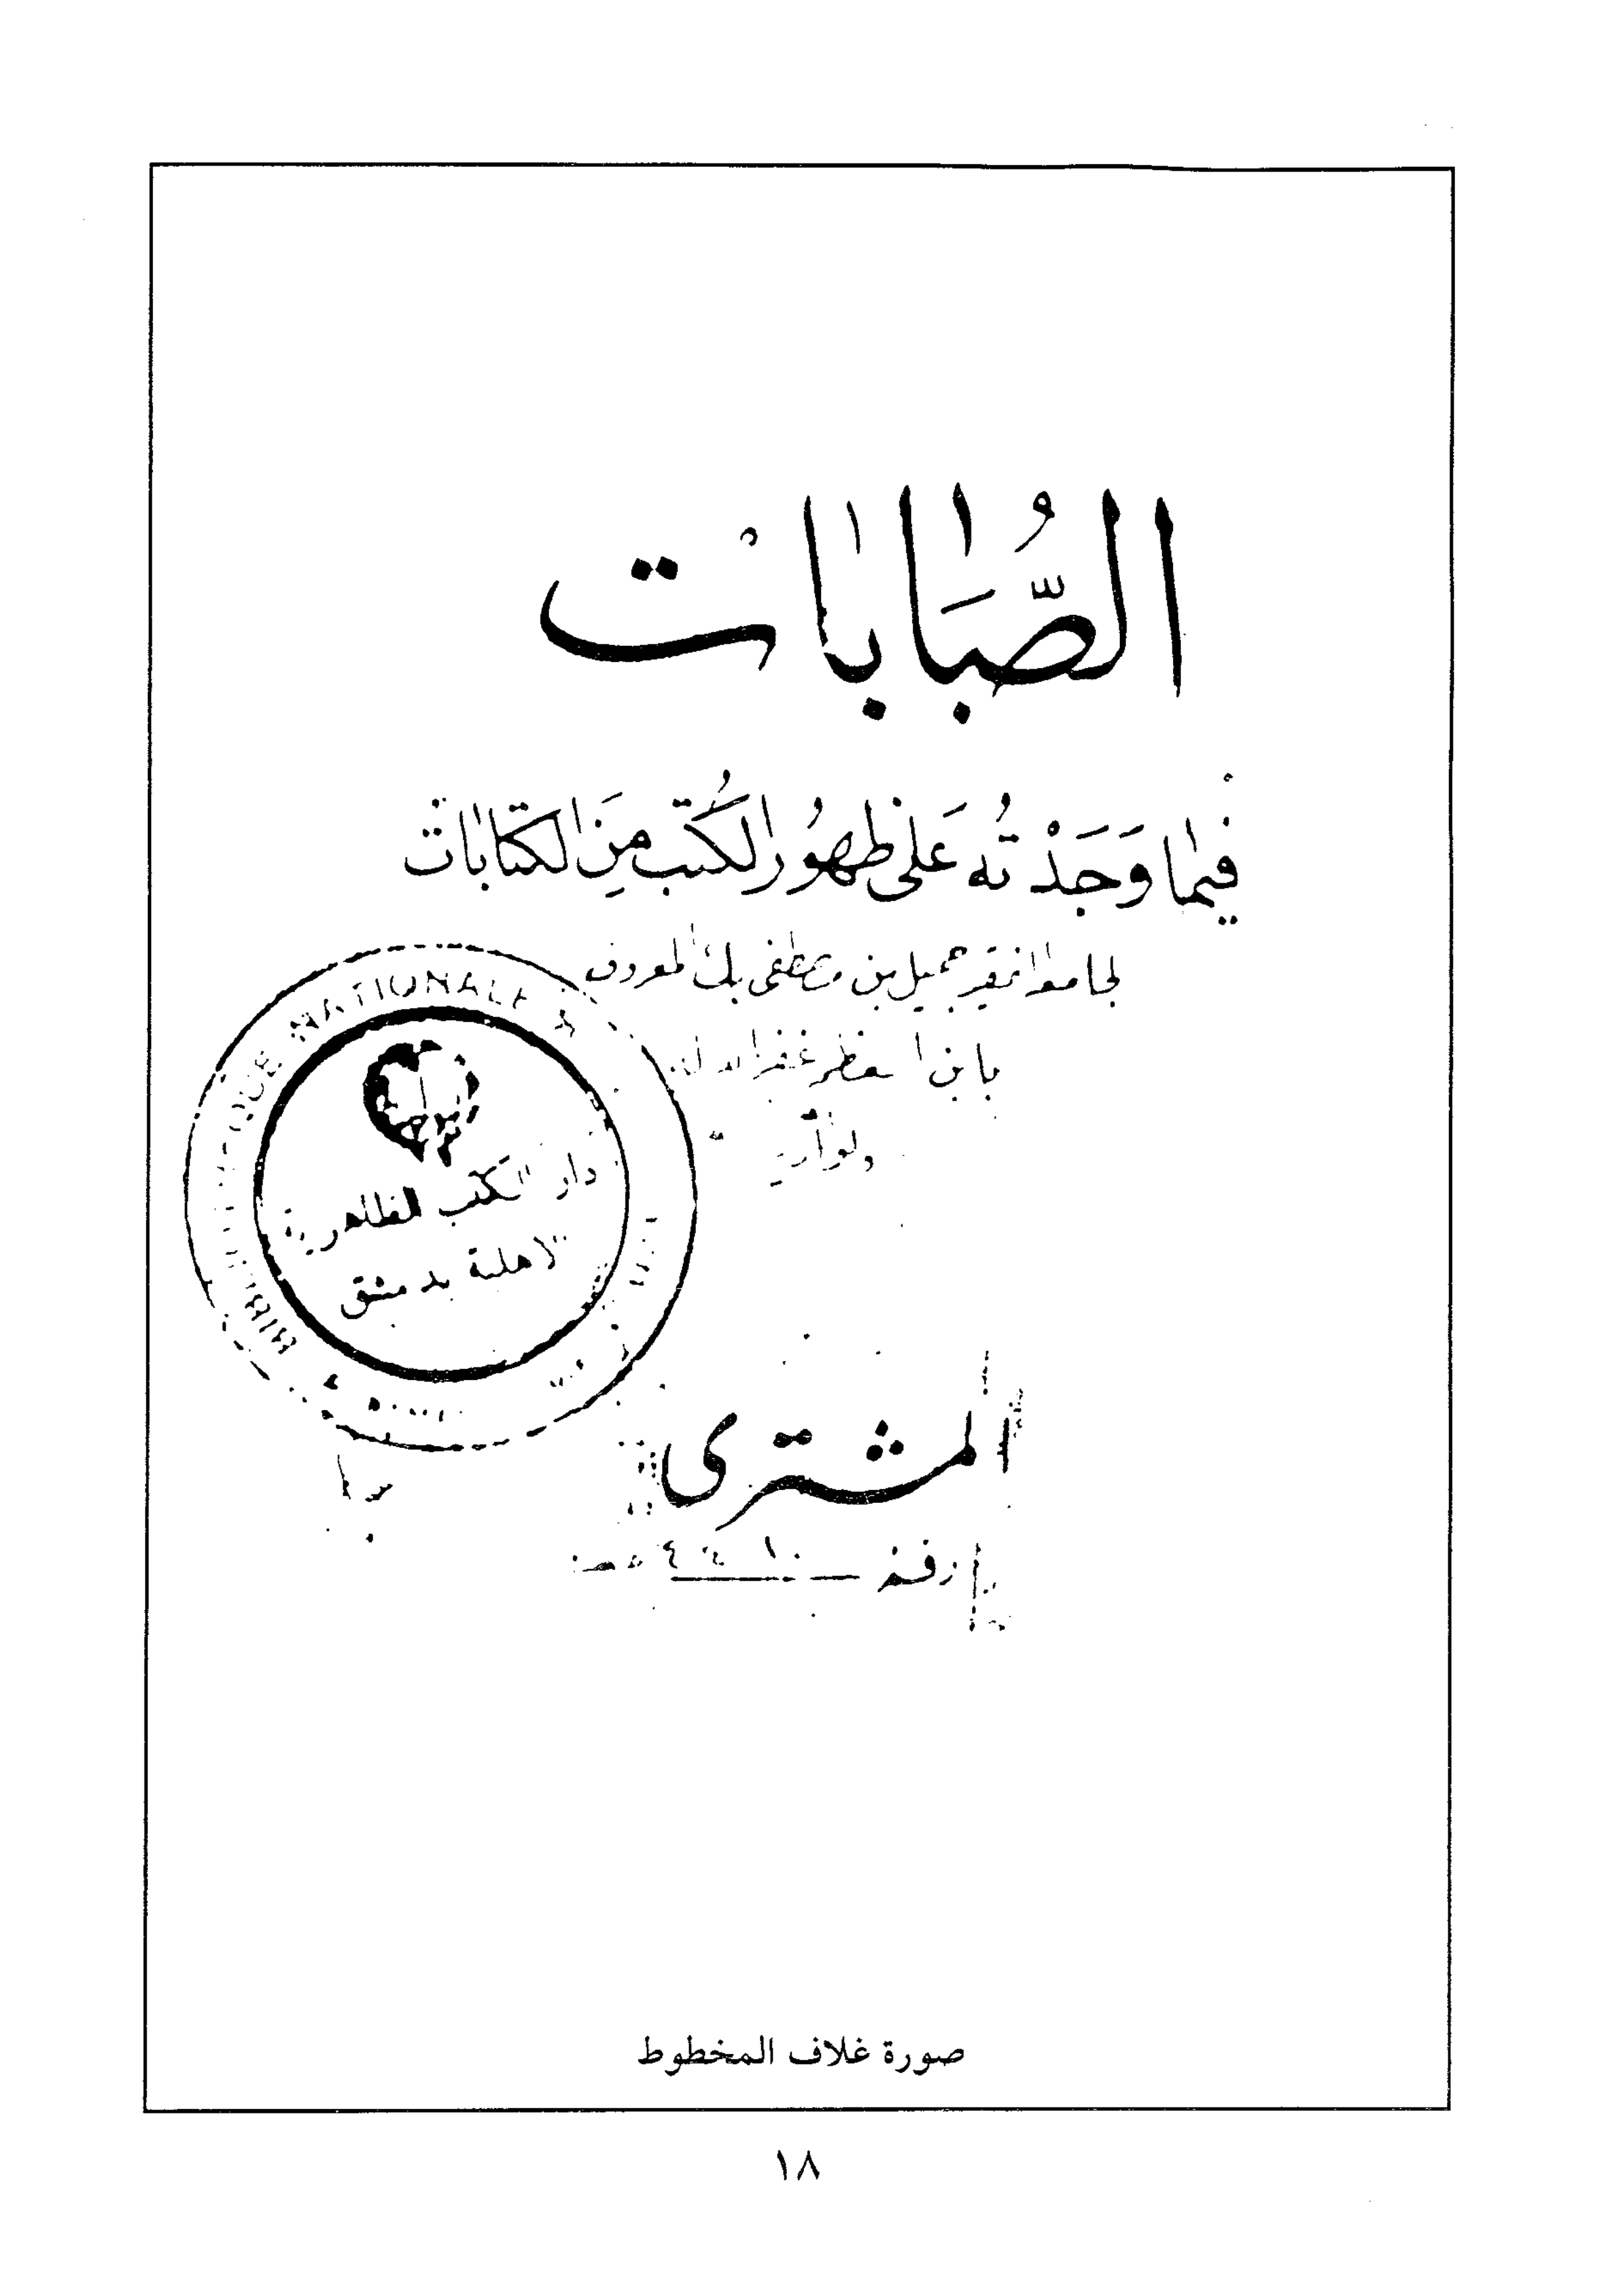 الصُّبَابَات
فيمَا وَجَدْتُه عَلى ظهُور الكُتب مِنَ الكتابات
لجامعه الفقير جميل بن مصطفى بك المعروف
بابن العظم غفر الله له
ولوالديه
NATIONALE
دار الكتب الظاهرية
الاهلية بدمشق
المشترى
رقم
صورة غلاف المخطوط
١٨